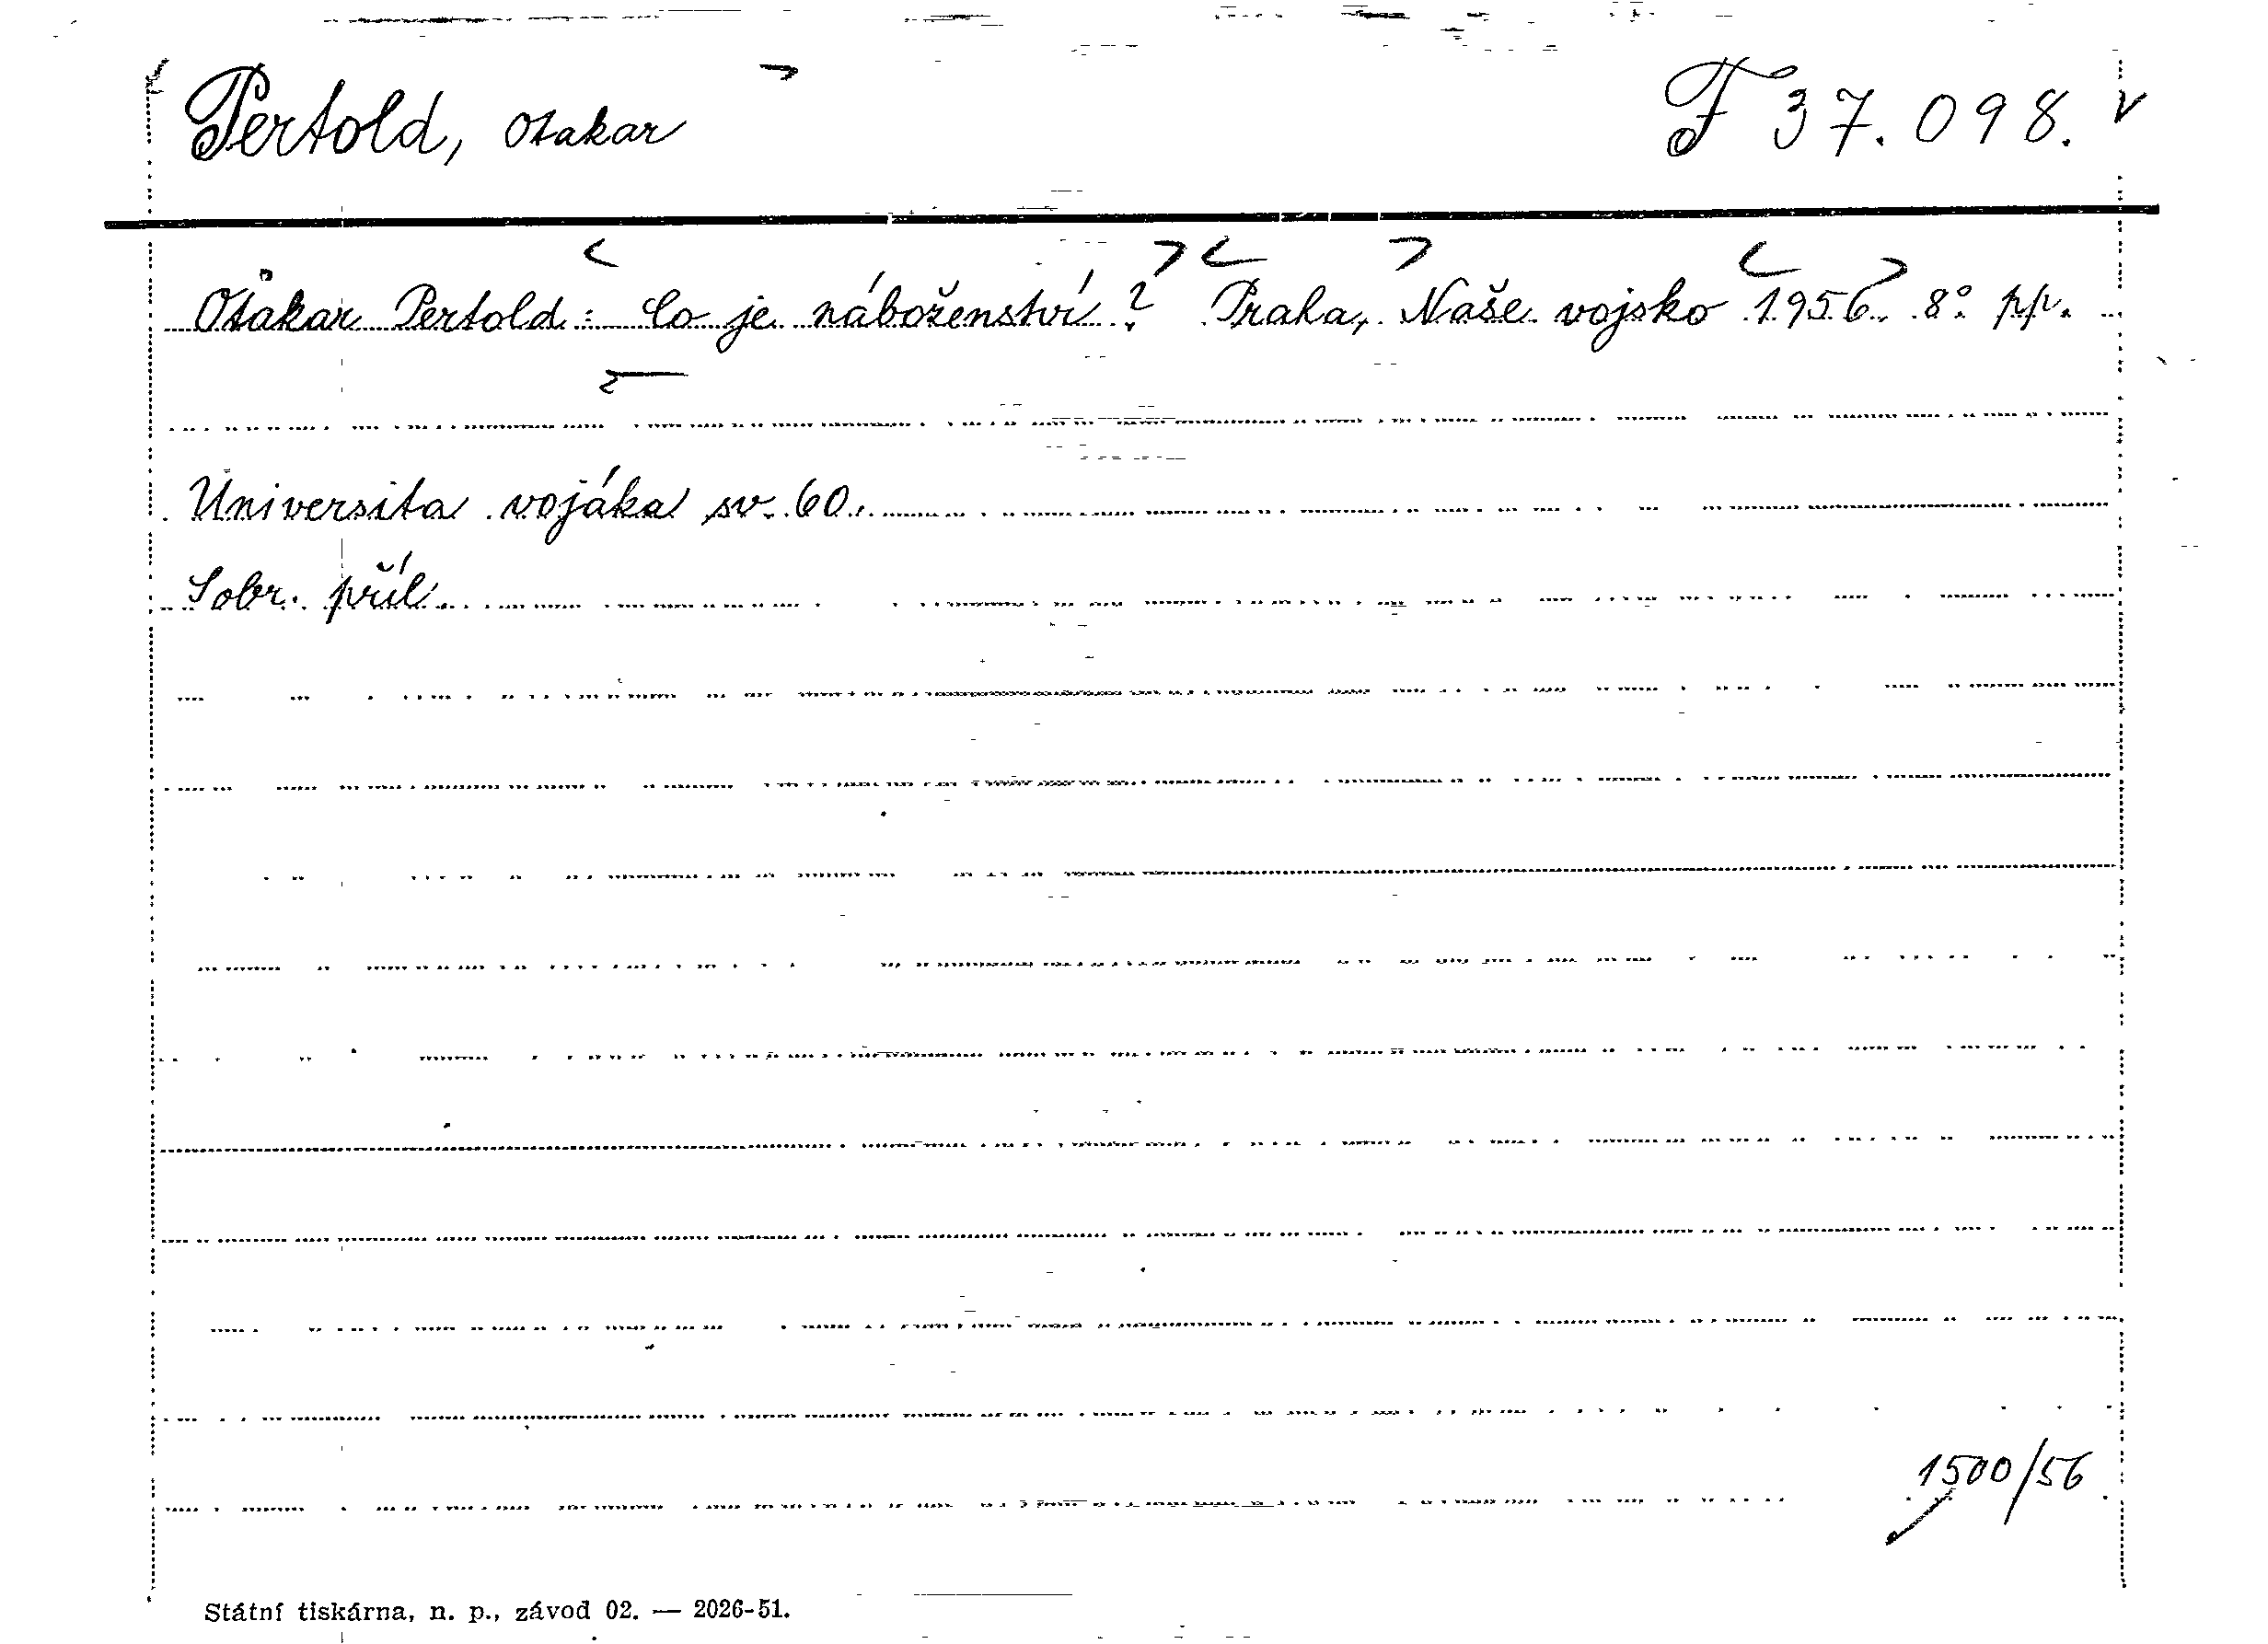 Pertold, Otakar F 37.098.
Otakar Pertold: Co je náboženství? Praha, Naše vojsko 1956. 8°. pp.
Universita vojáka sv. 60.
Sobr. příl.
1500/56
Státní tiskárna, n. p., závod 02. — 2026-51.